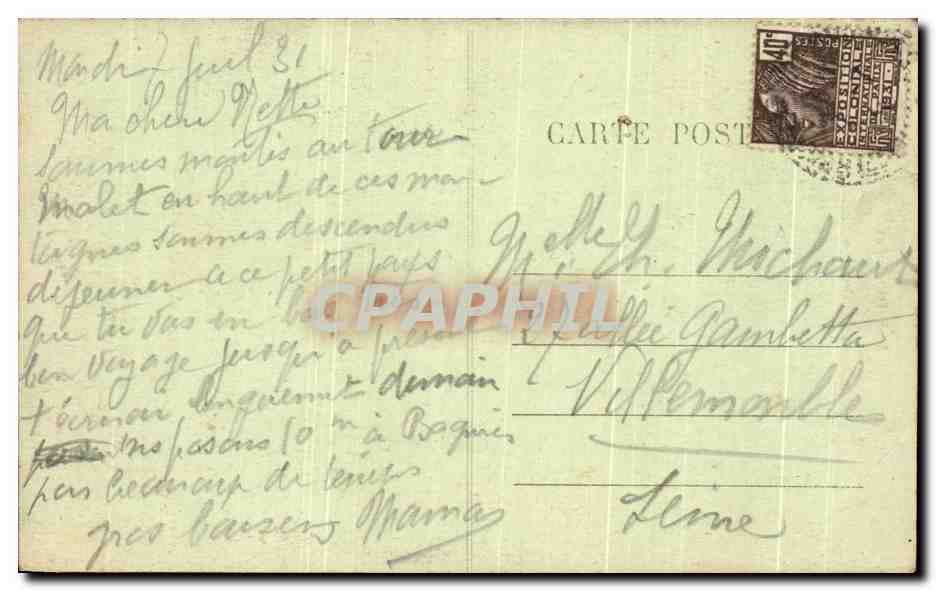 Mardi 7 Juil 31
Ma chere Nette
sommes montés au Tour
malet en haut de ces mon-
tagnes sommes descendus
déjeuner a ce petit pays
que tu vas en bas
bon voyage jusqu'a présent
t'écrirai longuement demain
ns posons 10 m à Bagnères
pas beaucoup de temps
gros baisers Maman
CARTE POST
40c
POSTES
EXPOSITION
COLONIALE
INTERNATIONALE
PARIS
1931
Melle Th. Michaut
7 allée Gambetta
Villemomble
Seine
CPAPHIL